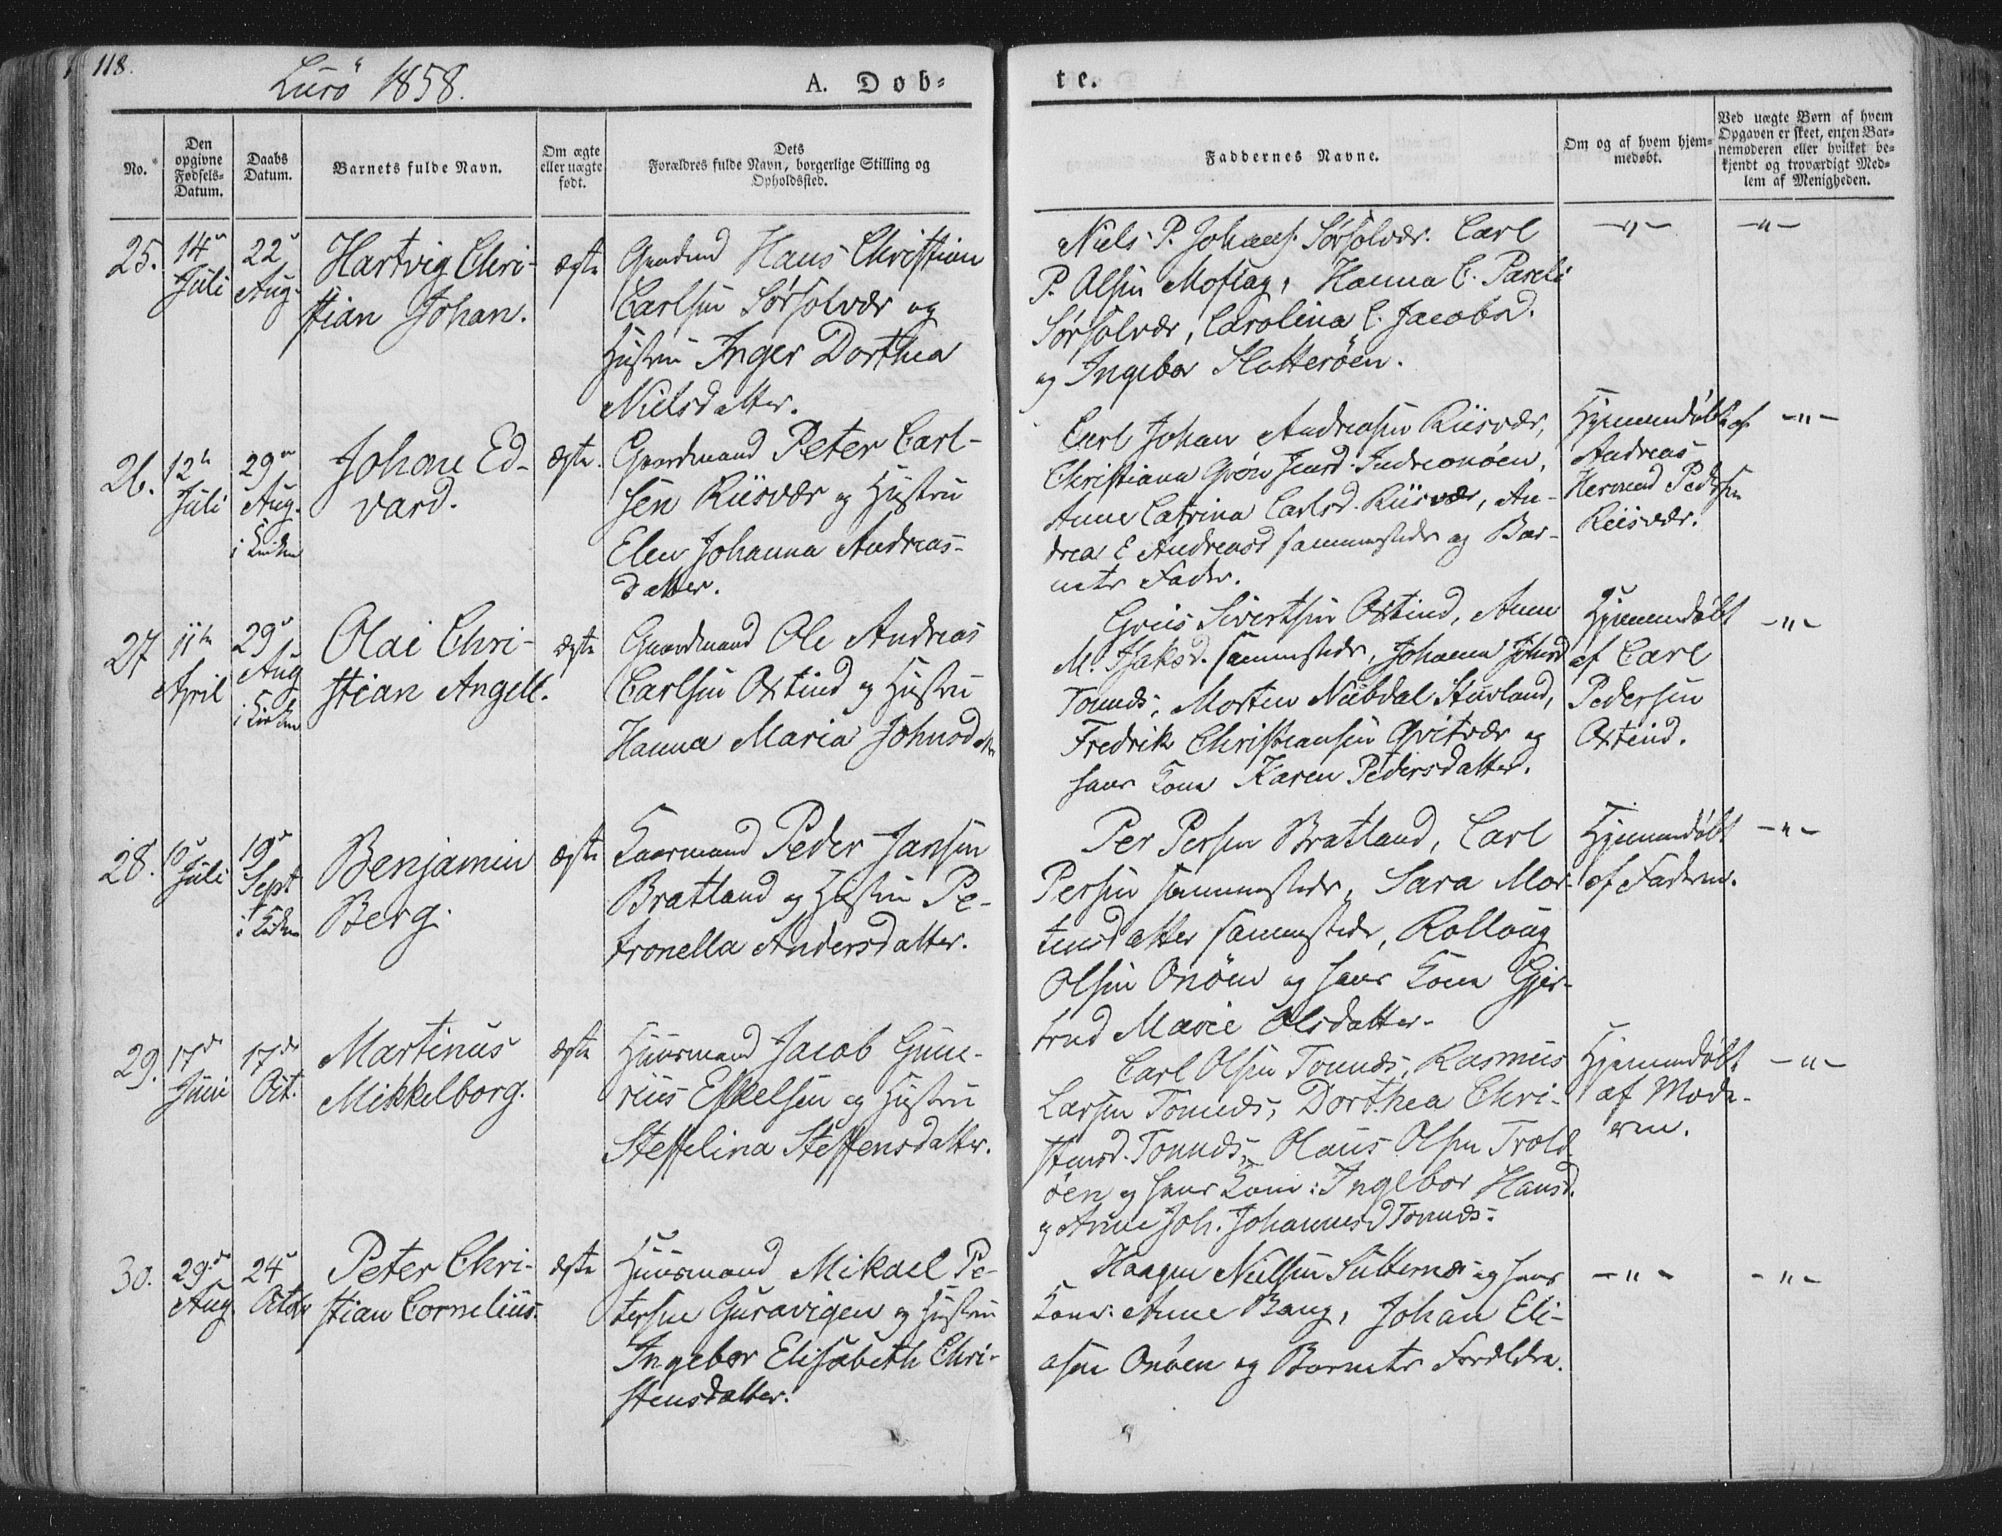 118.
Lurö 1858.
A. Døb-
te.
No.
Den opgivne Fødsels-Datum.
Daabs Datum.
Barnets fulde Navn.
Om ægte eller uægte født.
Dets Forældres fulde Navn, borgerlige Stilling og Opholdssted.
Faddernes Navne.
Om og af hvem hjem-medøbt.
Ved uægte Børn af hvem Opgaven er skeet, enten Bar-nemoderen eller hvilket be-kjendt og troværdigt Med-lem af Menigheden.
25.
14de
Juli
22de
Aug.
Hartvig Chri-
stian Johan.
ægte
Hans Christian
Carlsen Sørsolvær og
Hustru Inger Dorthea
Nielsdatter.
Niels P. Johans. Sørsolvær. Carl
P. Olsen Moflag, Hanna C.
Sørsolvær, Carolina C. Jacobsd.
og Ingebor Slotterøen.
-"-
-"-
26.
12te
Juli
29de
Aug.
i Kirken
Johan Ed-
vard.
ægte.
Gaardmand Peter Carl-
sen Riisvær og Hustru
Elen Johanna Andreas-
datter.
Carl Johan Andreasen Riisvær,
Christiana Grøn Jensd. Indreonøen,
Anne Catrina Carlsd. Riisvær, An-
drea E Andreasd sammesteds og Bar-
nets Fader.
Hjemmedøbt af
Andreas
Hermand Pedersen
Riisvær.
-"-
27
11te
April
29de
Aug
i Kirken
Olai Chri-
stian Angell.
ægte
Gaardmand Ole Andreas
Carlsen Oxtind og Hustru
Hanna Maria Johnsdatter
Greis Sivertsen Oxtind, Anne
M. Isaksd. sammesteds, Johanna Johnsd
Tonnes, Morten Nubdal Stuvland,
Fredrik Christiansen Qvitvær og
hans Kone Karen Pedersdatter.
Hjemmedøbt
af Carl
Pedersen
Oxtind.
-"-
28.
10de
Juli
19de
Sept
i Kirken
Benjamin
Berg.
ægte
Kaarmand Peder Jansen
Bratland og Hustru Pe-
tronella Andersdatter.
Per Persen Bratland, Carl
Persen sammesteds, Sara Mor-
tensdatter sammesteds, Rollaug
Olsen Onøen og hans Kone Gjer-
trud Marie Olsdatter.
Hjemmedøbt
af Faderen.
-"-
29.
17de
Juni
17de
Oct.
Martinus
Mikkelborg.
ægte
Huusmand Jacob Gune-
rius Eskelsen og Hustru
Steffelina Steffensdatter.
Carl Olsen Tonnes, Rasmus
Larsen Tonnes, Dorthea Chri-
stensd. Tonnes, Olaus Olsen Trold
øen og hans Kone: Ingebor Hansd.
og Anne Joh. Johannesd Tonnes.
Hjemmedøbt
af Mode-
ren.
-"-
30.
29de
Aug
24de
Octbr
Peter Chri-
stian Cornelius.
ægte
Huusmand Mikael Pe-
tersen Guravigen og Hustru
Ingebor Elisabeth Chri-
stensdatter.
Haagen Nielsen Sutternes og hans
Kone: Anne Bang, Johan Eli-
asen Onøen og Barnets Forældre.
-"-
-"-